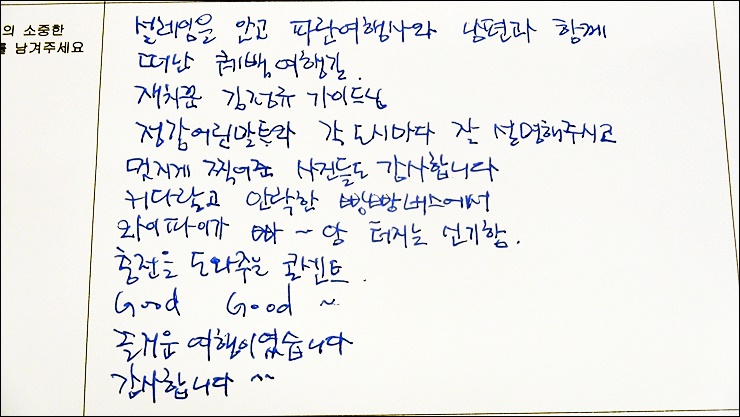 의 소중한
를 남겨주세요
설레임을 안고 파란여행사와 남편과 함께
떠난 퀘백여행길.
재치꾼 김정류 가이드님
정감어린말투와 각 도시마다 잘 설명해주시고
멋지게 찍어준 사진들도 감사합니다
커다랗고 안락한 빵빵버스에서
와이파이가 빠~앙 터지는 신기함.
충전을 도와주는 콘센트.
Good Good ~
즐거운 여행이였습니다
감사합니다 ^^